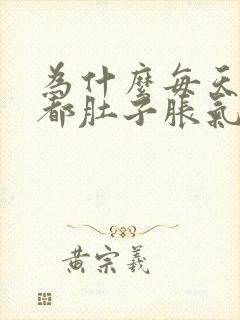 為什麼每天
都肚子脹氣
黃宗羲